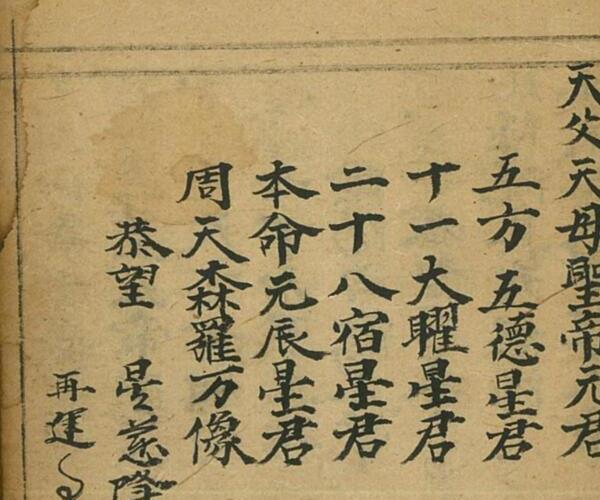 天父天母聖帝元君
五方五德星君
十一大曜星君
二十八宿星君
本命元辰星君
周天森羅万像
恭望 星慈降
再運